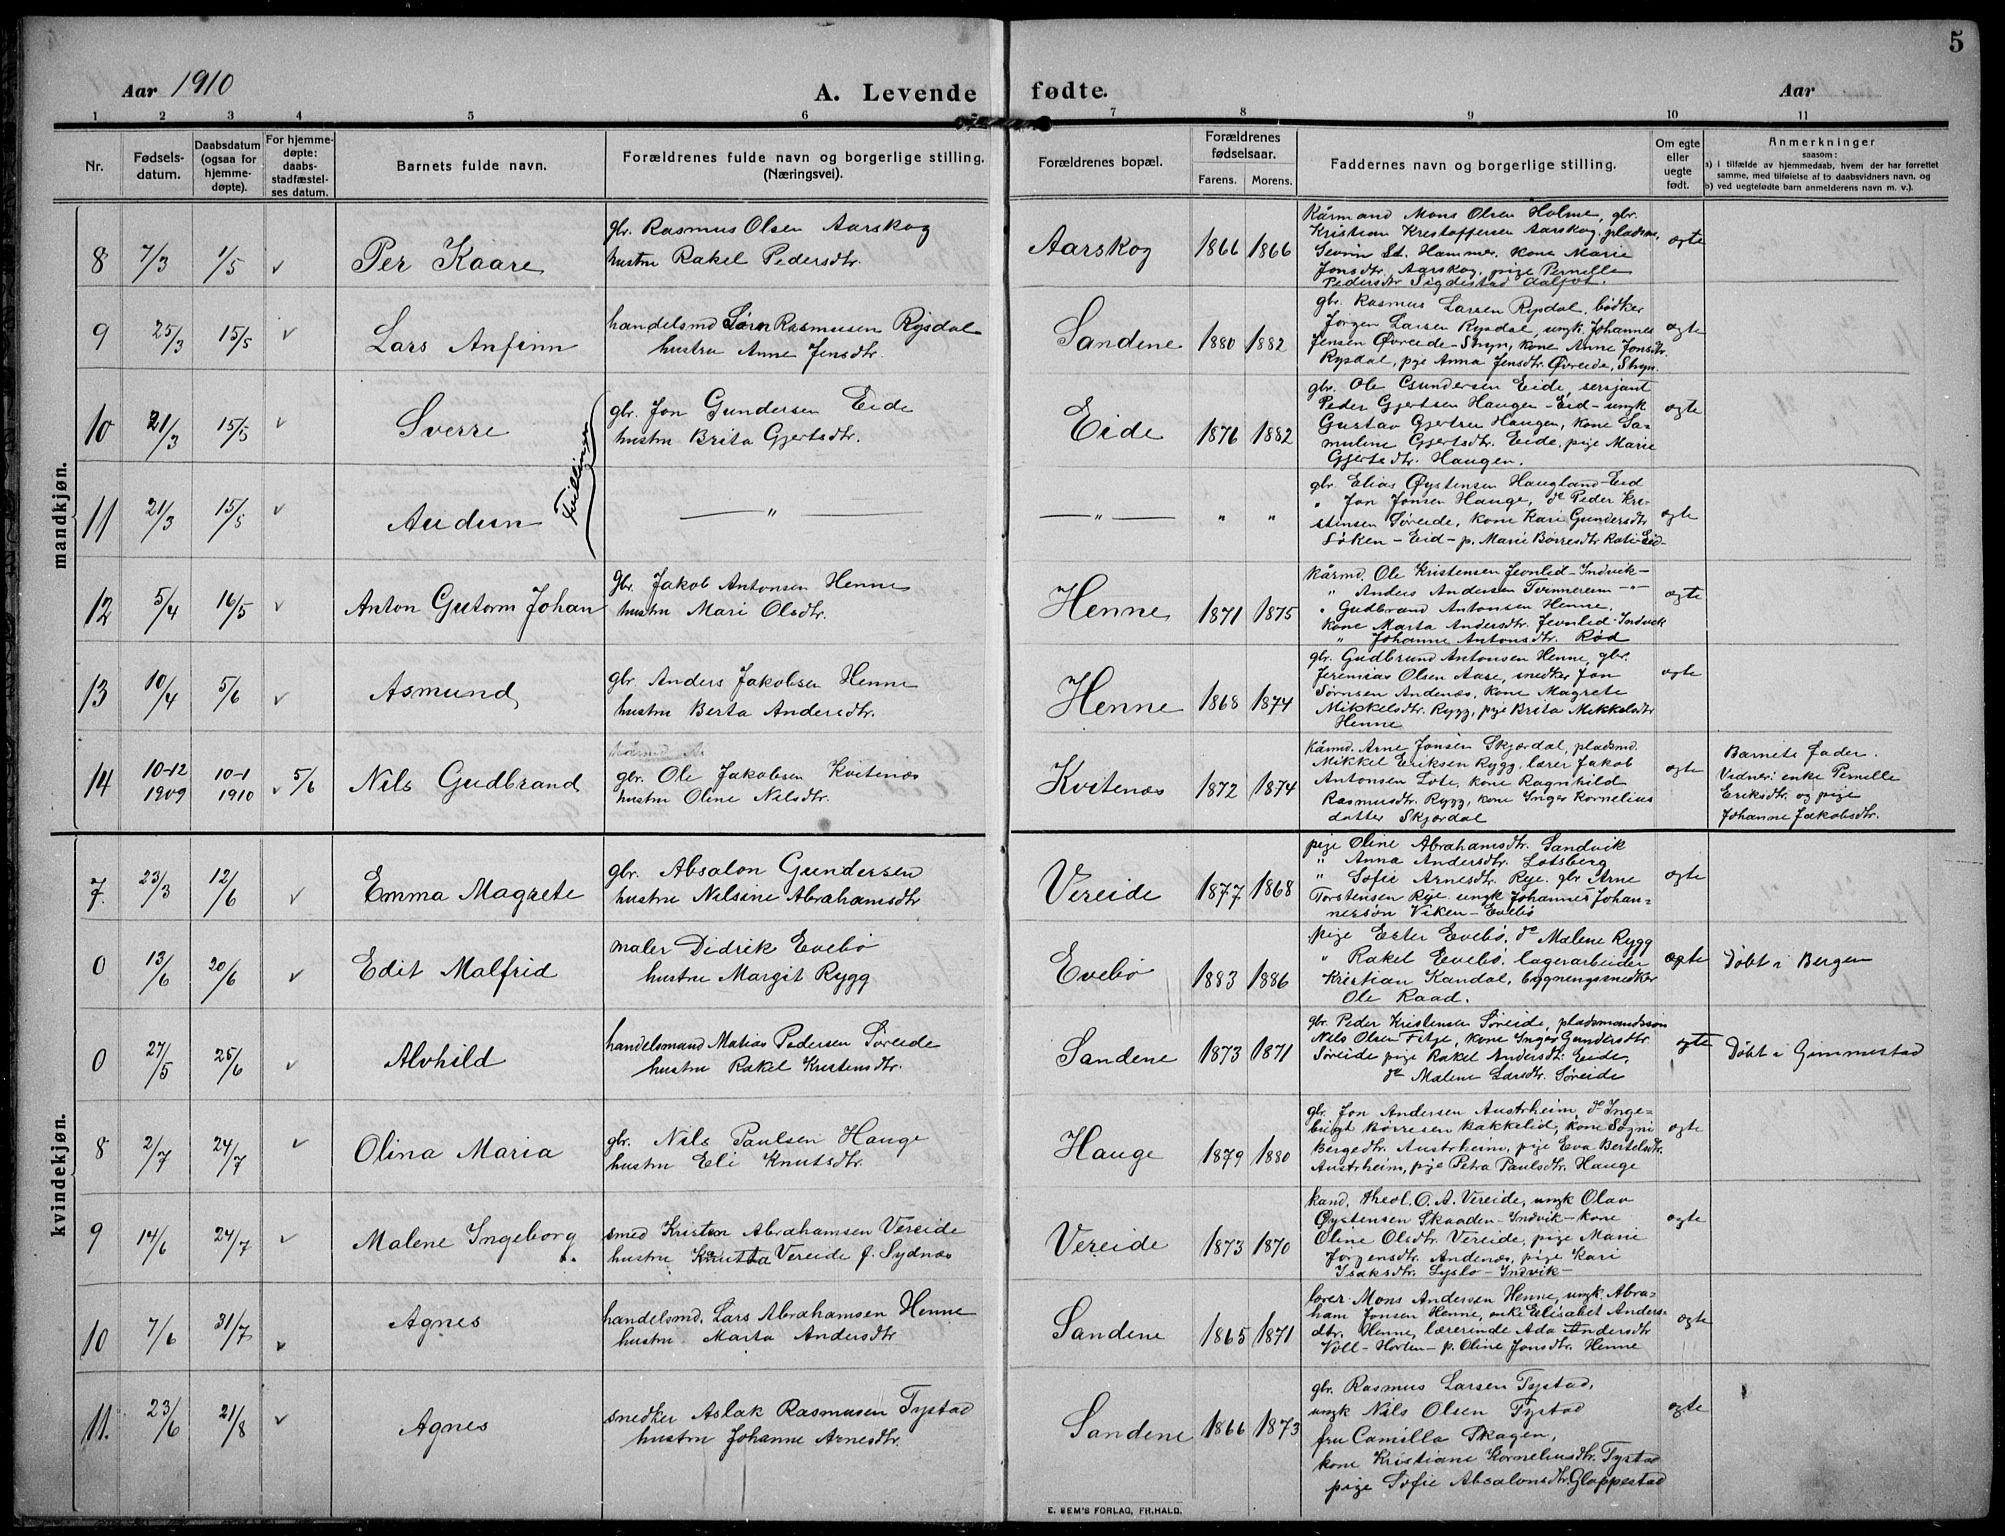 5
Aar 1910
A. Levende fødte.
Aar
1 2 3 4 5 6 7 8 9 10 11
Nr.
Fødsels-
datum.
Daabsdatum
(ogsaa for
hjemme-
døpte).
For hjemme-
døpte:
daabs-
stadfæstel-
ses datum.
Barnets fulde navn.
Forældrenes fulde navn og borgerlige stilling.
(Næringsvei).
Forældrenes bopæl.
Forældrenes
fødselsaar.
Farens. Morens.
Faddernes navn og borgerlige stilling.
Om egte
eller
uegte
født.
Anmerkninger
saasom:
a) i tilfælde av hjemmedaab, hvem der har forrettet
samme, med tilføielse af to daabsvidners navn, og
b) ved uegtefødte barn anmelderens navn m. v.).
mandkjøn.
8 7/3 1/5 Per Kaare
gbr. Rasmus Olsen Aarskog
hustru Rakel Pedersdtr.
Aarskog 1866 1866
Kårmand Mons Olsen Holme, gbr.
Kristian Kristoffersen Aarskog, pladsm.
Sevrin St. Hammer, kone Marie
Jonsdtr. Aarskog, pige Pernelle
Pedersdtr Sigdestad Aalfot.
egte
9 25/3 15/5 Lars Anfinn
handelsmd Søren Rasmusen Rysdal
hustru Anne Jensdtr
Sandene 1880 1882
gbr. Rasmus Larsen Rysdal, bødker
Jørgen Larsen Rysdal, ungk. Johannes
Jensen Øvreide-Stryn, kone Anne Jonsdtr.
Rysdal, pige Anna Jensdtr. Øvreide, Stryn.
egte
10 21/3 15/5 Sverre
gbr. Jon Gundersen Eide
hustru Brita Gjertsdtr.
Eide 1876 1882
gbr. Ole Gundersen Eide, sersjant
Peder Gjertsen Haugen-Eid-ungk
Gustav Gjertsen Haugen, kone Sa-
muline Gjertsdtr. Eide, pige Marie
Gjertsdtr. Haugen.
egte
Tvillinger
11 21/3 15/5 Audun
— " —
— " — " "
gbr. Elias Øystensen Haugland-Eid
" Jon Jonsen Hauge, do Peder Kri-
stensen Søreide, kone Kari Gundersdtr
Søken-Eid-p. Marie Børresdtr Rati-Eid-
egte
12 5/4 16/5 Anton Gutorm Johan
gbr. Jakob Antonsen Henne
hustru Mari Olsdtr.
Henne 1871 1875
Kårmd. Ole Kristensen Jevnlid-Indvik-
" Anders Andersen Tvinnereim -"-
" Gudbrand Antonsen Henne,
kone Marta Andersdtr. Jevnlid-Indvik
" Johanne Antonsdtr. Rød
egte
13 10/4 5/6 Asmund
gbr. Anders Jakobsen Henne
hustru Berta Andersdtr.
Henne 1868 1874
gbr. Gudbrand Antonsen Henne, gbr.
Jeremias Olsen Aase, snedker Jon
Sørnsen Andenæs, kone Magrete
Mikkelsdtr. Rygg, pige Brita Mikkelsdtr
Henne
egte
14 10-12 1909 10-1 1910 5/6 Nils Gudbrand
gbr. Ole Jakobsen Kvitenæs
hustru Oline Nilsdtr.
Kvitenæs 1872 1874
Kårmd. Arne Jonsen Skjærdal, pladsmd.
Mikkel Eriksen Rygg, lærer Jakob
Antonsen Lote, kone Ragnhild
Rasmusdtr. Rygg, kone Inger Kornelius
datter Skjærdal
egte
Barnets fader.
Vidner: enke Pernelle
Eriksdtr. og pige
Johanne Jakobsdtr.
kvindekjøn.
7. 23/3 12/6 Emma Magrete
gbr. Absalon Gundersen
hustru Nilsine Abrahamsdtr
Vereide 1877 1868
pige Oline Abrahamsdtr. Sandvik
" Anna Andersdtr. Lotsberg
" Sofie Arnesdtr. Rye. gbr Arne
Torstensen Rye. ungk Johannes Johan-
nersøn Viken-Evebø
egte
0 13/6 20/6 Edit Malfrid
maler Didrik Evebø
hustru Margit Rygg
Evebø 1883 1886
pige Ester Evebø, do Malene Rygg
" Rakel Evebø, lagerarbeider
Kristian Kandal, bygningssnedker
Ole Raad.
egte
Døbt i Bergen
0 27/5 25/6 Alvhild
handelsmand Matias Pedersen Søreide
hustru Rakel Kristensdtr.
Sandene 1873 1871
gbr. Peder Kristensen Søreide, pladsmandssøn
Nils Olsen Fitje, kone Inger Gundersdtr.
Søreide pige Rakel Andersdtr. Eide,
do Malene Larsdtr. Søreide
egte
Døbt i Gimmestad
8 2/7 24/7 Olina Maria
gbr. Nils Paulsen Hauge
hustru Eli Knutsdtr.
Hauge 1879 1880
gbr. Jon Andersen Austrheim, do Inge-
brigt Børresen Bakkelid, kone Sogni
Bergedtr. Austrheim, pige Eva Bertelsdtr.
Austrheim, pige Petra Paulsdtr. Hauge
egte
9 14/6 24/7 Malene Ingeborg
smed Kristen Abrahamsen Vereide
hustru Knutta Vereide f. Sydnæs
Vereide 1873 1870
kand. theol. O. A. Vereide, ungk Olav
Øystensen Skaaden-Indvik-kone
Oline Olsdtr. Vereide, pige Marie
Jørgensdtr. Andenæs, pige Kari
Isaksdtr. Lyslo-Indvik-
egte
10 7/6 31/7 Agnes
handelsmd. Lars Abrahamsen Henne
hustru Marta Andersdtr
Sandene 1865 1871
lærer Mons Andersen Henne, ungk. Abra-
ham Jonsen Henne, enke Elisabet Anders-
dtr. Henne, lærerinde Ada Andersdtr
Voll-Horten-p. Oline Jonsdtr. Henne
egte
11. 23/6 21/8 Agnes
snedker Aslak Rasmusen Tystad
hustru Johanne Arnesdtr.
Sandene 1866 1873
gbr. Rasmus Larsen Tystad,
ungk Nils Olsen Tystad
fru Camilla Skagen,
kone Kristiane Korneliusdtr. Tystad
pige Sofie Absalonsdtr. Gloppestad
egte
E. SEM'S FORLAG, FR.HALD.